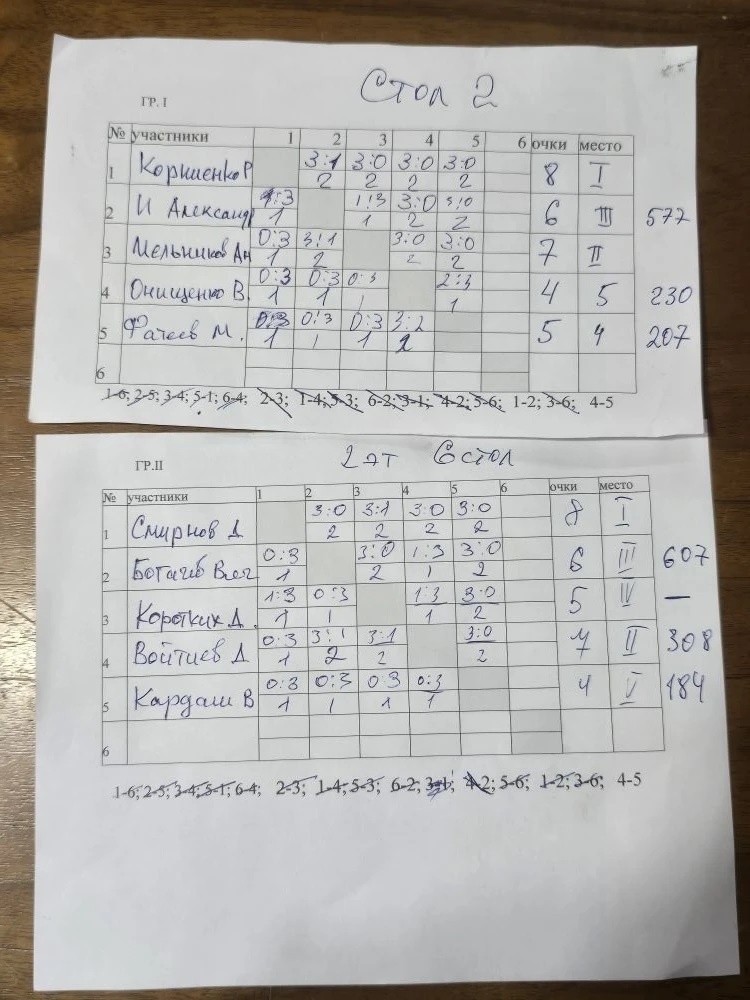 Стол 2
ГР. I
№ участники 1 2 3 4 5 6 очки место
1 Корниенко Р 3:1 3:0 3:0 3:0 8 I
2 2 2 2
2 И Александр 1:3 1:3 3:0 3:0 6 III 577
1 1 2 2
3 Мельников Ан 0:3 3:1 3:0 3:0 7 II
1 2 2 2
4 Онищенко В. 0:3 0:3 0:3 2:3 4 5 230
1 1 1 1
5 Фатеев М. 0:3 0:3 0:3 3:2 5 4 207
1 1 1 2
6
1-6; 2-5; 3-4; 5-1; 6-4; 2-3; 1-4; 5-3; 6-2; 3-1; 4-2; 5-6; 1-2; 3-6; 4-5
ГР.II
2 эт 6 стол
№ участники 1 2 3 4 5 6 очки место
1 Смирнов Д 3:0 3:1 3:0 3:0 8 I
2 2 2 2
2 Ботачев 0:3 3:0 1:3 3:0 6 III 607
1 2 1 2
3 Коротких Д. 1:3 0:3 1:3 3:0 5 IV —
1 1 1 2
4 Войтиев Д 0:3 3:1 3:1 3:0 7 II 308
1 2 2 2
5 Кардаш В 0:3 0:3 0:3 0:3 4 V 184
1 1 1 1
6
1-6; 2-5; 3-4; 5-1; 6-4; 2-3; 1-4; 5-3; 6-2; 3-1; 4-2; 5-6; 1-2; 3-6; 4-5